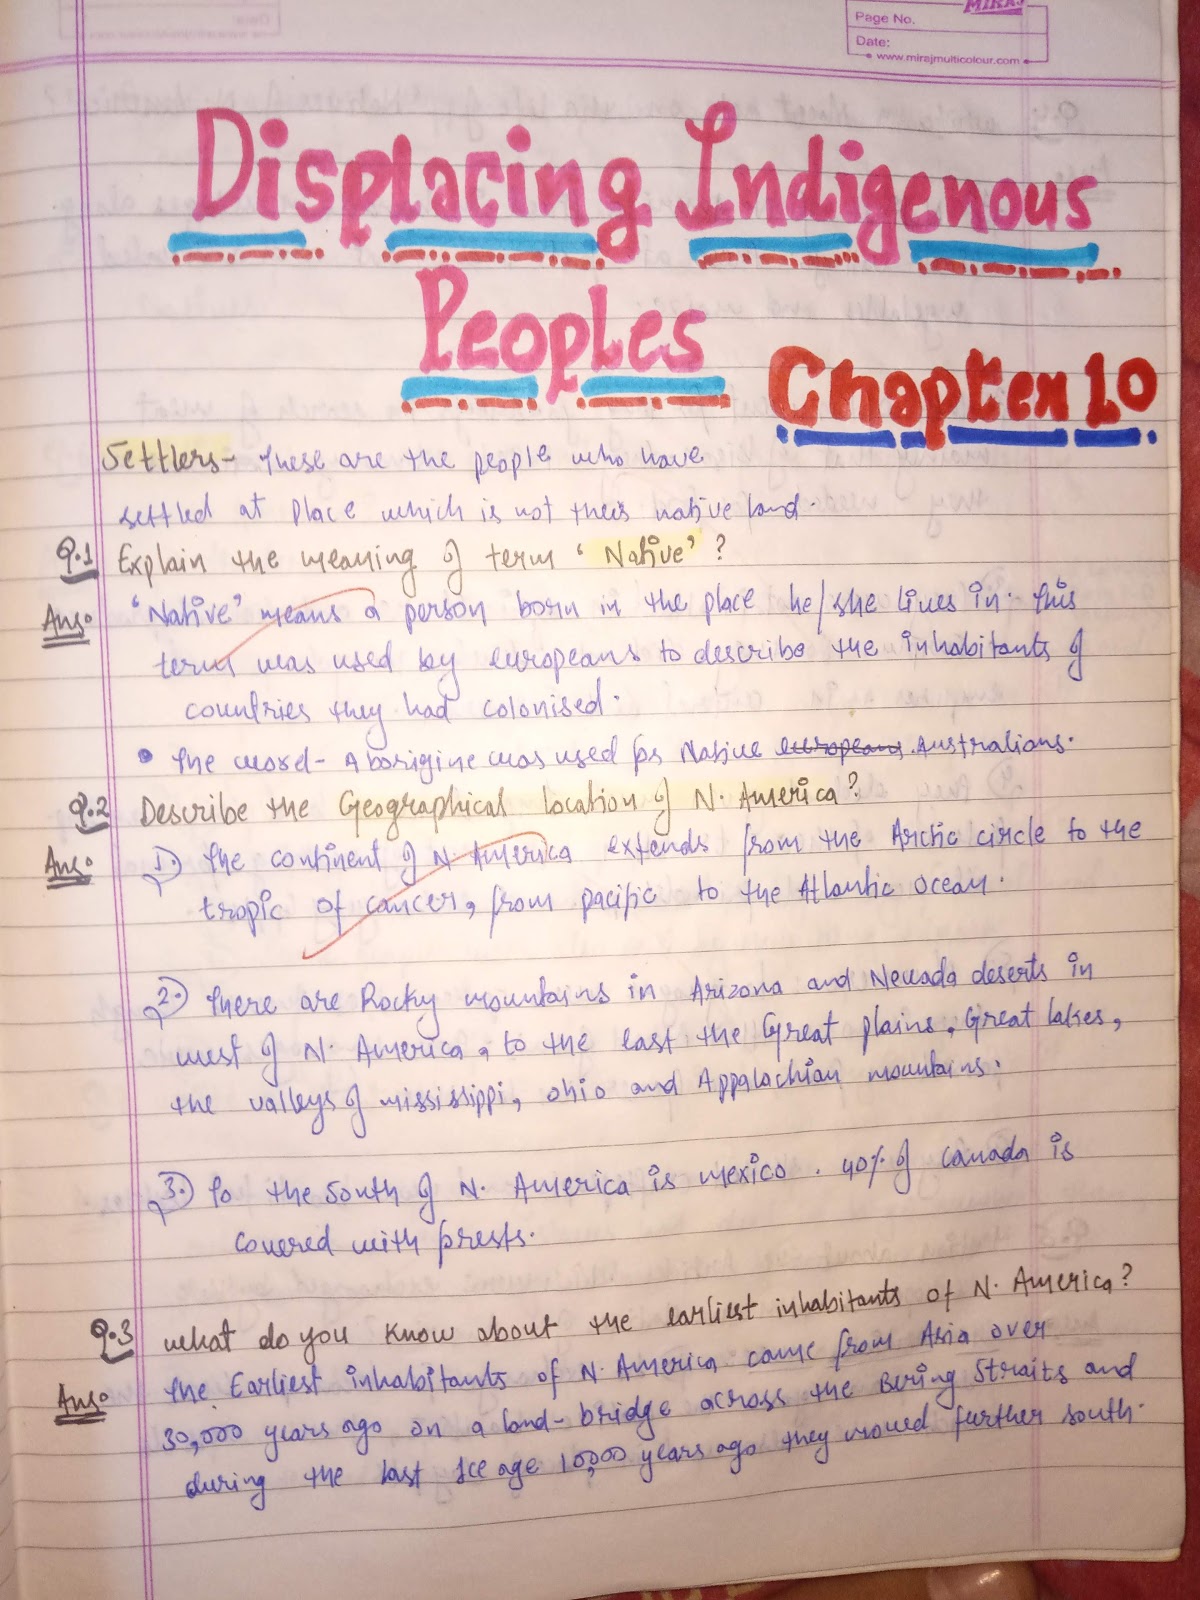 MIRAJ
Page No.
Date:
www.mirajmulticolour.com
Displacing Indigenous
Peoples
Chapter 10
Settlers- These are the people who have
settled at place which is not their native land.
Q.1 Explain the meaning of term ‘Native’?
Ans: ‘Native’ means a person born in the place he/she lives in. This
term was used by europeans to describe the inhabitants of
countries they had colonised.
• The word- Aborigine was used for Native europeans Australians.
Q.2 Describe the Geographical location of N. America?
Ans: 1. The continent of N. America extends from the Arctic circle to the
tropic of cancer, from pacific to the Atlantic ocean.
2. There are Rocky mountains in Arizona and Nevada deserts in
west of N. America, to the east the Great plains, Great lakes,
the valleys of mississippi, ohio and Appalachian mountains.
3. To the South of N. America is mexico. 40% of canada is
covered with forests.
Q.3 what do you know about the earliest inhabitants of N. America?
Ans: The Earliest inhabitants of N. America came from Asia over
30,000 years ago on a land-bridge across the Bering Straits and
during the last Ice age 10,000 years ago they moved further south.